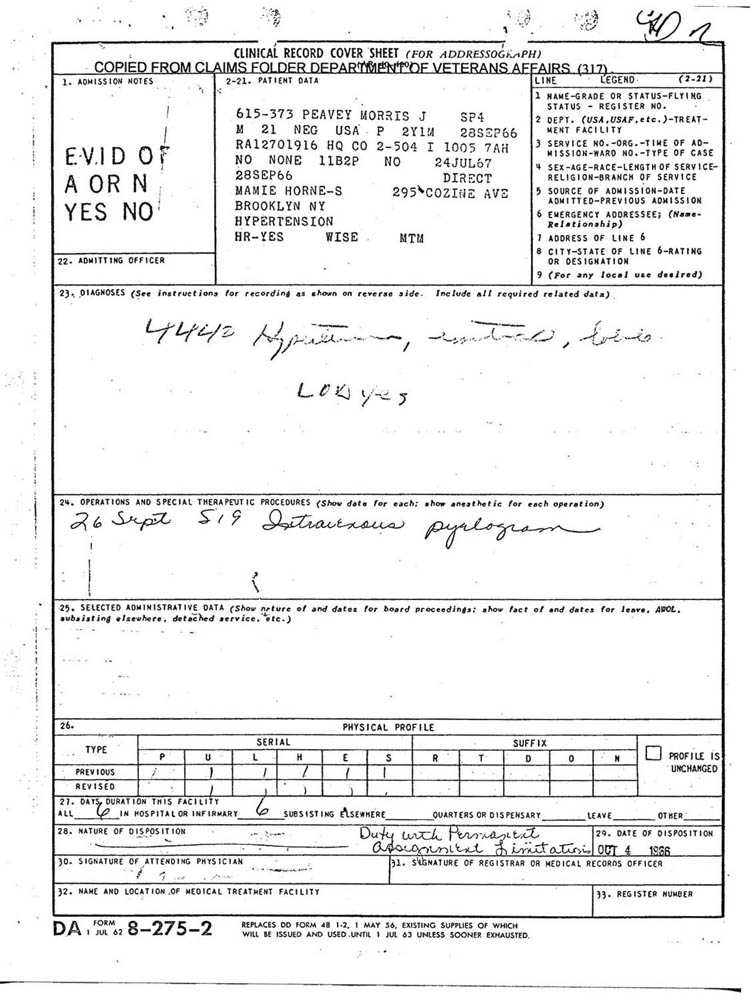 CLINICAL RECORD COVER SHEET (FOR ADDRESSOGRAPH)
COPIED FROM CLAIMS FOLDER DEPARTMENT OF VETERANS AFFAIRS (317)
1. ADMISSION NOTES
E.V.ID OF
A OR N
YES NO
22. ADMITTING OFFICER
2-21. PATIENT DATA
615-373 PEAVEY MORRIS J SP4
M 21 NEG USA P 2Y1M 28SEP66
RA12701916 HQ CO 2-504 I 1005 7AH
NO NONE 11B2P NO 24JUL67
28SEP66 DIRECT
MAMIE HORNE-S 295 COZINE AVE
BROOKLYN NY
HYPERTENSION
HR-YES WISE MTM
LINE LEGEND (2-21)
1 NAME-GRADE OR STATUS-FLYING
STATUS - REGISTER NO.
2 DEPT. (USA,USAF,etc.)-TREAT-
MENT FACILITY
3 SERVICE NO.-ORG.-TIME OF AD-
MISSION-WARD NO.-TYPE OF CASE
4 SEX-AGE-RACE-LENGTH OF SERVICE-
RELIGION-BRANCH OF SERVICE
5 SOURCE OF ADMISSION-DATE
ADMITTED-PREVIOUS ADMISSION
6 EMERGENCY ADDRESSEE; (Name-
Relationship)
7 ADDRESS OF LINE 6
8 CITY-STATE OF LINE 6-RATING
OR DESIGNATION
9 (For any local use desired)
23. DIAGNOSES (See instructions for recording as shown on reverse side. Include all required related data)
LOD yes
24. OPERATIONS AND SPECIAL THERAPEUTIC PROCEDURES (Show date for each; show anesthetic for each operation)
26 Sept 519 Intravenous pyelogram
25. SELECTED ADMINISTRATIVE DATA (Show nature of and dates for board proceedings; show fact of and dates for leave, AWOL,
subsisting elsewhere, detached service, etc.)
26. PHYSICAL PROFILE
TYPE SERIAL SUFFIX
P U L H E S R T D O N
PROFILE IS
UNCHANGED
PREVIOUS 1 1 1 1 1 1
REVISED
27. DAYS DURATION THIS FACILITY
ALL 6 IN HOSPITAL OR INFIRMARY 6 SUBSISTING ELSEWHERE QUARTERS OR DISPENSARY LEAVE OTHER
28. NATURE OF DISPOSITION
Duty with Permanent
Assignment Limitations
29. DATE OF DISPOSITION
OCT 4 1966
30. SIGNATURE OF ATTENDING PHYSICIAN
31. SIGNATURE OF REGISTRAR OR MEDICAL RECORDS OFFICER
32. NAME AND LOCATION OF MEDICAL TREATMENT FACILITY
33. REGISTER NUMBER
DA FORM 1 JUL 62 8-275-2
REPLACES DD FORM 48 1-2, 1 MAY 56, EXISTING SUPPLIES OF WHICH
WILL BE ISSUED AND USED UNTIL 1 JUL 63 UNLESS SOONER EXHAUSTED.